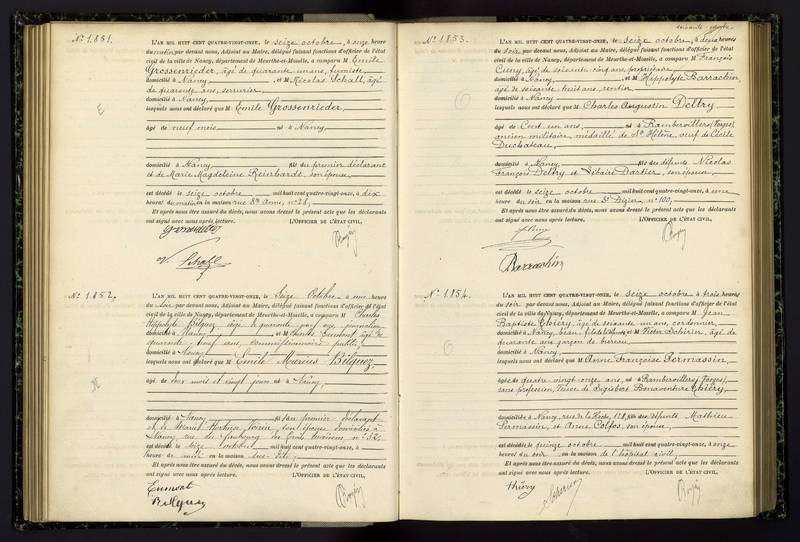 N° 1.851.
L'AN MIL HUIT CENT QUATRE-VINGT-ONZE, le seize octobre, à onze heure
du matin par devant nous, Adjoint au Maire, délégué faisant fonctions d'officier de l'état
civil de la ville de Nancy, département de Meurthe-et-Moselle, a comparu M Emile
Grossenrieder, âgé de quarante un ans, fumiste,
domicilié à Nancy, et M Nicolas Schall, âgé
de quarante ans, serrurier,
domicilié à Nancy
lesquels nous ont déclaré que M Emile Grossenrieder,
âgé de neuf mois né à Nancy,
domicilié à Nancy fils du premier déclarant
et de Marie Magdeleine Reinbardt, son épouse,
est décédé le seize octobre mil huit cent quatre-vingt-onze, à dix
heures du matin en la maison rue Ste Anne, n° 28,
Et après nous être assuré du décès, nous avons dressé le présent acte que les déclarants
ont signé avec nous après lecture. L'OFFICIER DE L'ÉTAT CIVIL,
N. Schall
N° 1.852.
L'AN MIL HUIT CENT QUATRE-VINGT-ONZE, le Seize Octobre à une heure
du soir par devant nous, Adjoint au Maire, délégué faisant fonctions d'officier de l'état
civil de la ville de Nancy, département de Meurthe-et-Moselle, a comparu M Charles
Hippolyte Bilquez âgé de quarante neuf ans journalier
domicilié à Nancy et M Charles Cumont âgé de
quarante neuf ans, commissionnaire public,
domicilié à Nancy
lesquels nous ont déclaré que M Emile Marius Bilquez,
âgé de deux mois et vingt jours né à Nancy,
domicilié à Nancy fils du premier déclarant
et de son épouse domiciliés à
Nancy, rue du faubourg des trois maisons, n° 52,
est décédé le seize octobre mil huit cent quatre-vingt-onze, à
heure de midi en la maison sus-dite,
Et après nous être assuré du décès, nous avons dressé le présent acte que les déclarants
ont signé avec nous après lecture. L'OFFICIER DE L'ÉTAT CIVIL,
Cumont
Bilquez
N° 1.853.
L'AN MIL HUIT CENT QUATRE-VINGT-ONZE, le seize octobre, à deux heures
du soir par devant nous, Adjoint au Maire, délégué faisant fonctions d'officier de l'état
civil de la ville de Nancy, département de Meurthe-et-Moselle, a comparu M François
Cuny, âgé de soixante cinq ans, propriétaire,
domicilié à Nancy, et M Hippolyte Barrachin,
âgé de soixante huit ans, rentier,
domicilié à Nancy
lesquels nous ont déclaré que M Charles Augustin Deltry,
âgé de Cent un ans, né à Rambervillers (Vosges)
ancien militaire médaillé de Ste Hélène, veuf de Cécile
Duchateau,
domicilié à Nancy, fils des défunts Nicolas
François Deltry et Libaire Dartier, son épouse,
est décédé le seize octobre mil huit cent quatre-vingt-onze, à une
heure du soir en la maison rue St Dizier n° 100,
Et après nous être assuré du décès, nous avons dressé le présent acte que les déclarants
ont signé avec nous après lecture. L'OFFICIER DE L'ÉTAT CIVIL,
Barrachin
N° 1.854.
L'AN MIL HUIT CENT QUATRE-VINGT-ONZE, le seize octobre à trois heures
du soir par devant nous, Adjoint au Maire, délégué faisant fonctions d'officier de l'état
civil de la ville de Nancy, département de Meurthe-et-Moselle, a comparu M Jean
Baptiste Thiéry, âgé de soixante un ans, cordonnier,
domicilié à Nancy, et M Victor Schérier, âgé de
quarante ans garçon de bureau
domicilié à Nancy
lesquels nous ont déclaré que M Anne Françoise Permassin,
âgée de quatre-vingt onze ans, née à Rambervillers (Vosges)
sans profession, Veuve de Sigisbert Bonaventure Thiéry,
domiciliée à Nancy, fille des défunts Mathieu
Permassin, et Anne Colfos, son épouse,
est décédée le quinze octobre mil huit cent quatre-vingt-onze, à onze
heures du soir en la maison de l'hôpital civil,
Et après nous être assuré du décès, nous avons dressé le présent acte que les déclarants
ont signé avec nous après lecture. L'OFFICIER DE L'ÉTAT CIVIL,
thiery